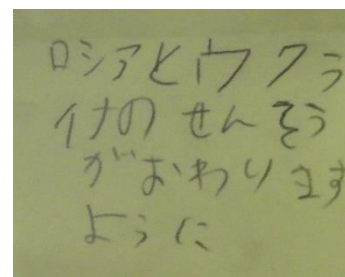 ロシアとウクラ
イナのせんそう
がおわります
ように